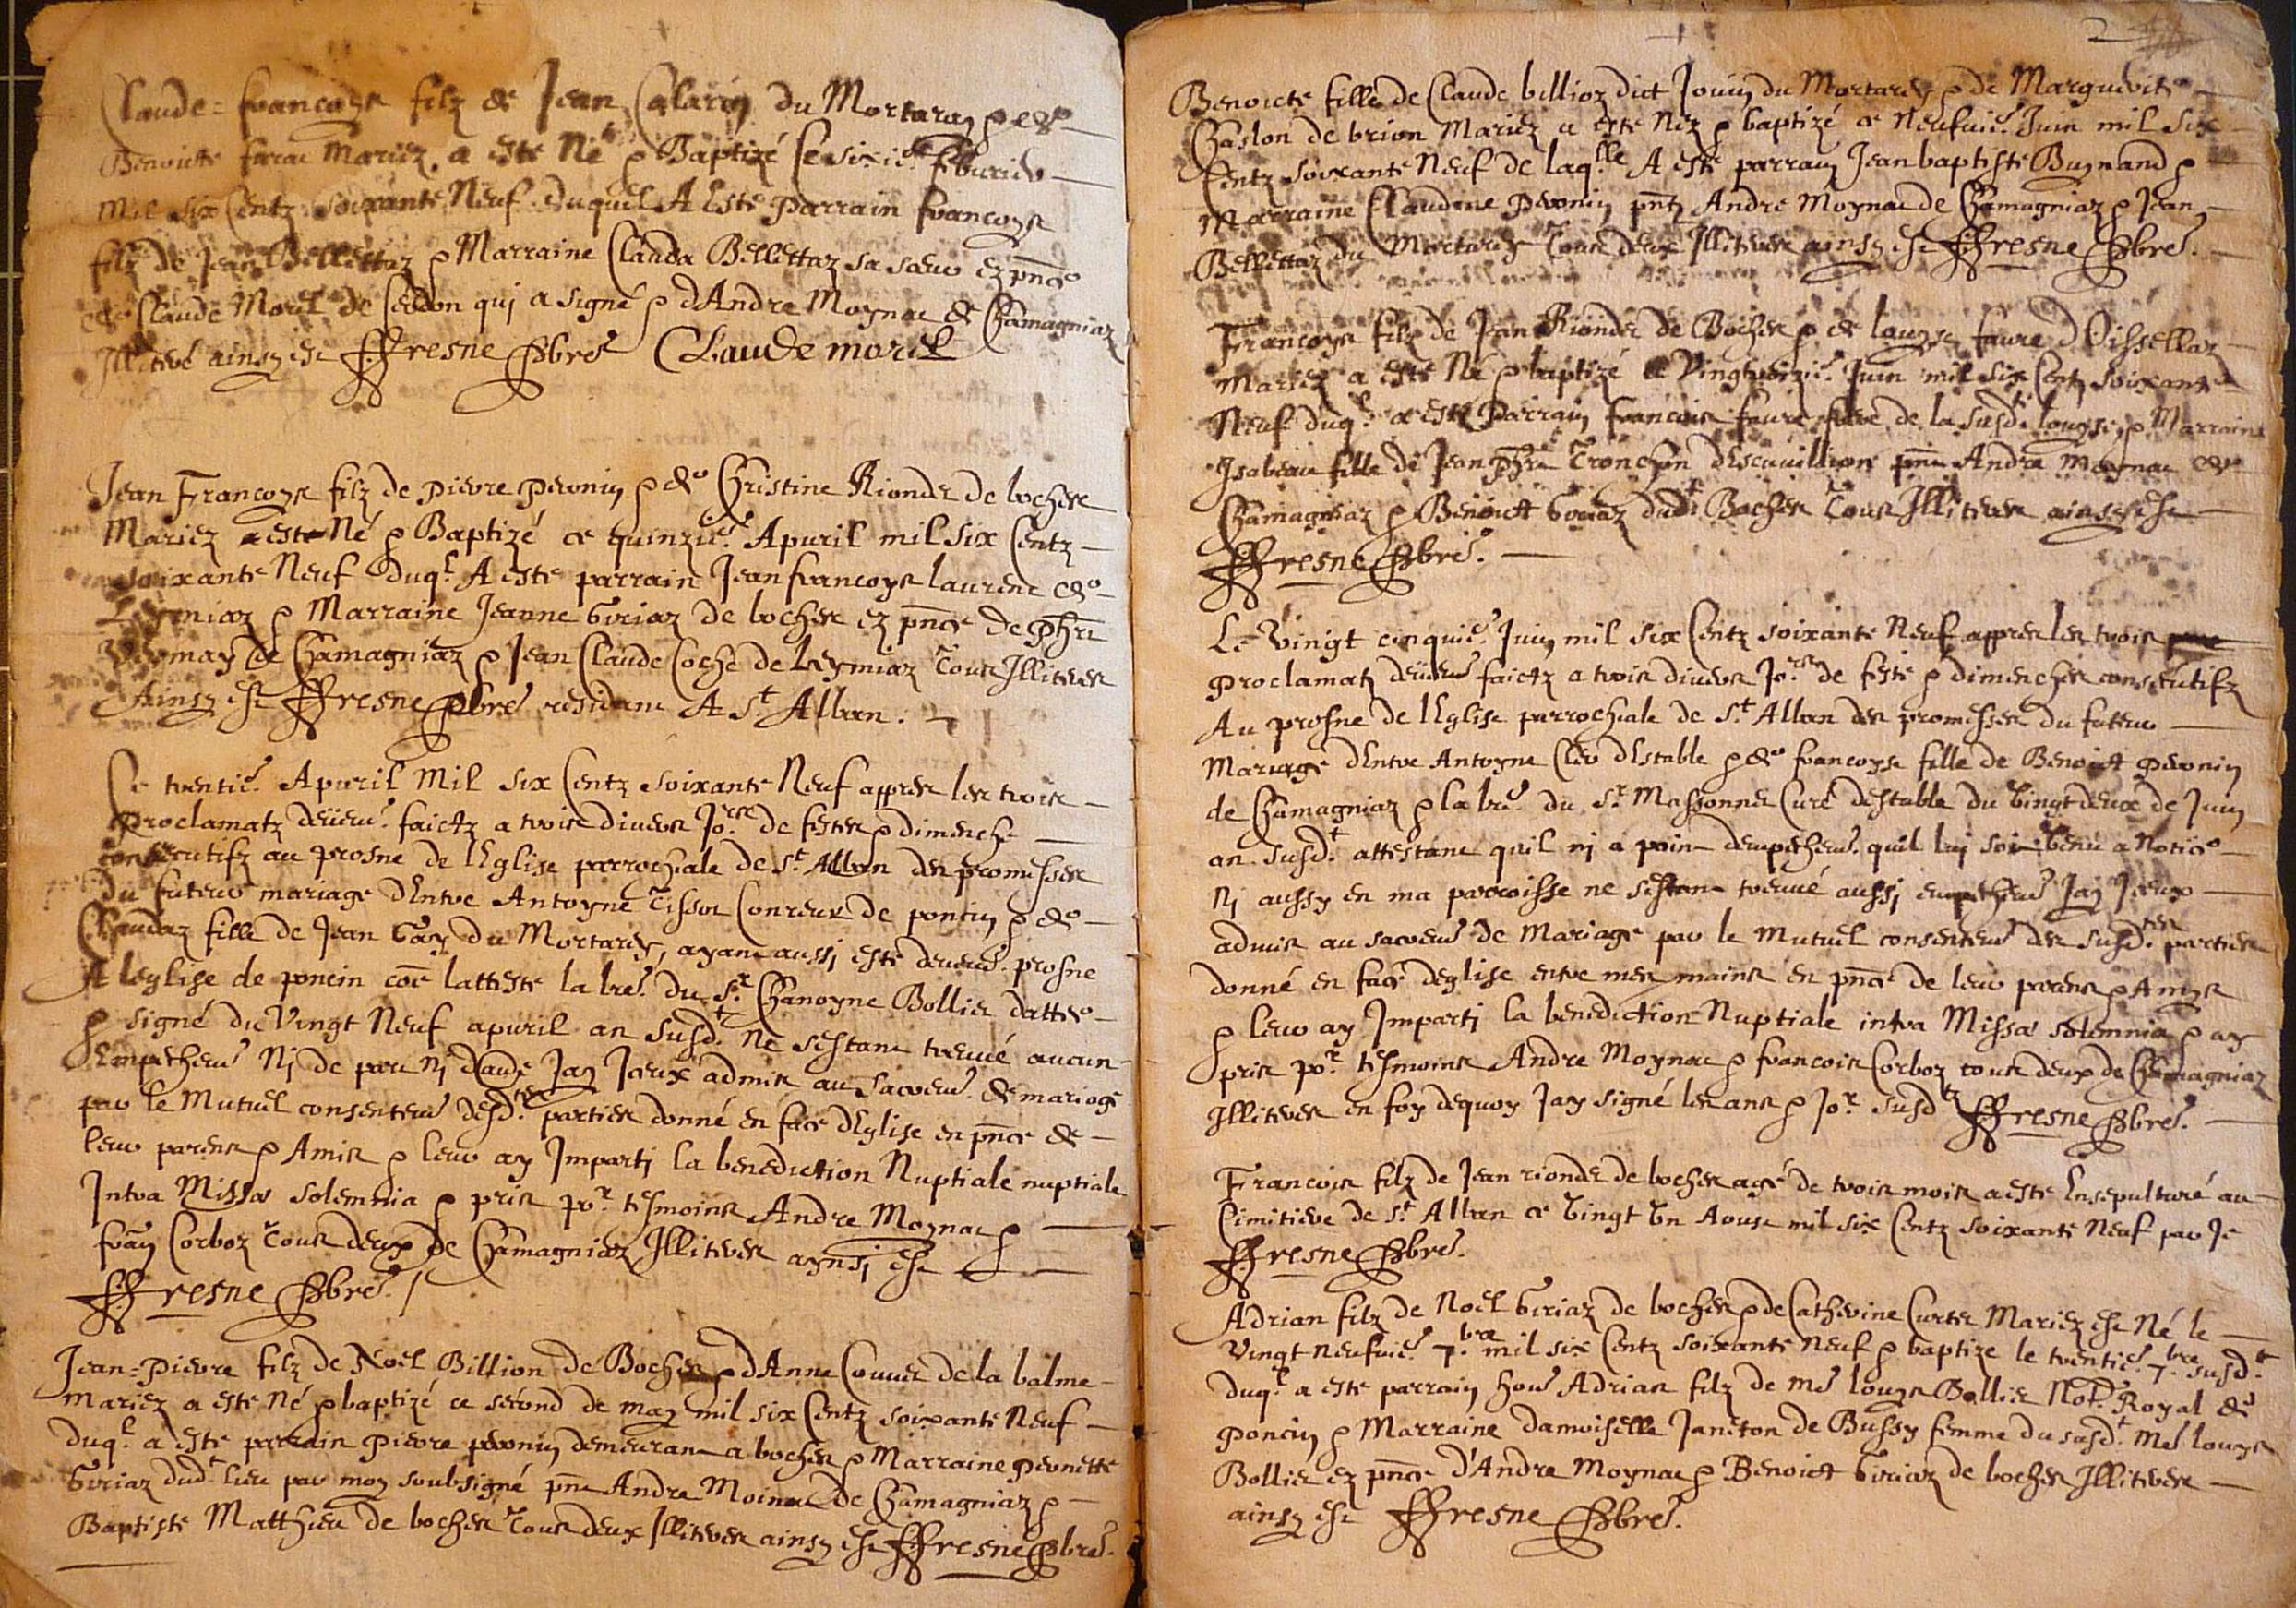 Claude=francoys filz de Jean Calariy du Mortarey & de
Benoiste farac Mariez a este Né & Baptizé Ce sixie. febvrier
Mil six Centz soixante Neuf duquel A Este parrain francoys
filz de Jean Bellettaz & Marraine Clauda Bellettaz sa sœur ez pnce
de Claude Morel de Cerdon quj a signé & dAndre Moynat de Chamagniaz
Illiteré ainsy est ffresne pbre Claude morel
Jean Francoys filz de pierre peronin & de Christine Riondet de boches
Mariez a este Né & Baptizé ce quinzie. Apuril mil six Centz
soixante Neuf duql A este parrain Jean francoys laurent de
Leymiaz & Marraine Jeanne Giriaz de boches ez pnce de phri
de Chamagniaz & Jean Claude Coche de leymiaz Tous Illiteres
Ainsy est ffresne pbre residant A St Alban.
Ce trentie. Apuril Mil six Centz soixante Neuf appres les trois
proclamatz deuem. faictz a trois divers Jors de festes & dimenche
consecutifz au prosne de lEglise parrochiale de St Alban des promesses
du futeur mariage dEntre Antoyne Tissot Conreur de poncin & de
Claudaz fille de Jean Gay du Mortarey, ayant aussj este deuem. prosne
A leglise de poncin coe latteste la lre. du Sr Chanoyne Bollier dattée
& signé du Vingt Neuf apuril an susdt. Ne sestant treuué aucun
Empechem Nj de part Nj daude Jay Jceux admis au sacrem. de mariage
par le Mutuel consentem desdtes parties donné en face dEglise en pnce de
leur parens & Amis & leur ay Impartj la benediction Nuptiale nuptiale
Intra Missa solemnia & pris por tesmoins Andre Moynat &
fran Corboz Tous deux de Chamagniaz Illiteres aynsj est
ffresne pbre. /
Jean=pierre filz de Noel Billion de Boches & dAnne Couuet de la balme
mariez a este né & baptizé ce second de may mil six Centz soixante Neuf
duql a este parrain pierre peronin demeurant a boches & Marraine peronette
Giriaz dudt lieu par moy soubsigné pnt Andre Moinat de Chamagniaz &
Baptiste Matthieu de boches Tous deux Illiteres ainsy est ffresne pbre.
2
Benoiste fille de Claude billioz dict Jouin du Mortarey & de Marguerite
Chaslon de brion Mariez a este Nez & baptizé ce Neufuie. Juin mil six
Centz soixante Neuf de laqlle A este parrain Jean baptiste Buynand &
Marraine Claudine peronin pntz Andre Moynat de Chamagniaz & Jean
Bellettaz du Mortarey Tous deux Illiteres ainsy est ffresne pbre.
Francoys filz de Jean Riondet de Boches & de louyse faure dOissellaz
Mariez a este Né & baptizé ce Vingtroizie. Juin mil six Centz soixante
Neuf duql a este parrain francois faure frere de la susdt louyse, & Marraine
Isabeau fille de Jean phri Tronchon dEscuuillion pnt Andre Moynat de
Chamagniaz & Benoict Giriaz dudt Boches Tous Illiteres ainsy est
ffresne pbre.
Le Vingt cinquie. Juin mil six Centz soixante Neuf appres les trois
proclamatz deuem faictz a trois divers Jors de feste & dimenches consecutifz
Au prosne de lEglise parrochiale de St Alban des promesses du futeur
Mariage dEntre Antoyne Cler dEstable & de francoyse fille de Benoict peronin
de Chamagniaz & la lre du Sr Massonnet Curé destable du Vingt deux de Juin
an susdt. attestant quil nj a point dempechem. quil luj soit Venu a Notice
Nj aussy en ma parroisse ne sestant treuué aussj empechem Jay Jceux
admis au sacrem de Mariage par le Mutuel consentem des susdtes parties
donné en face deglise entre mes mains en pnce de leur parens & Amys
& leur ay Impartj la benediction Nuptiale intra Missa solemnia & ay
pris por tesmoins Andre Moynat & francois Corboz tous deux de Chamagniaz
Illiteres en foy dequoy Jay signé les ans & Jor susdtz ffresne pbre.
Francois filz de Jean riondet de boches agé de trois mois a este Ensepulturé au
Cimitiere de St Alban ce Vingt Vn Aoust mil six Centz soixante Neuf par Je
ffresne pbre.
Adrian filz de Noel Giriaz de boches & de Catherine Curtet Mariez est Né le
Vingt neufuie. 7.bre mil six Centz soixante neuf & baptize le trentie. 7.bre susdt.
duql a este parrain hon Adrian filz de me louys Bollier Not. Royal de
poncin & Marraine damoiselle Janeton de Bussy femme du susdt me louys
Bollier ez pnce d'Andre Moynat & Benoict Giriaz de boches Illiteres
ainsy est ffresne pbre.